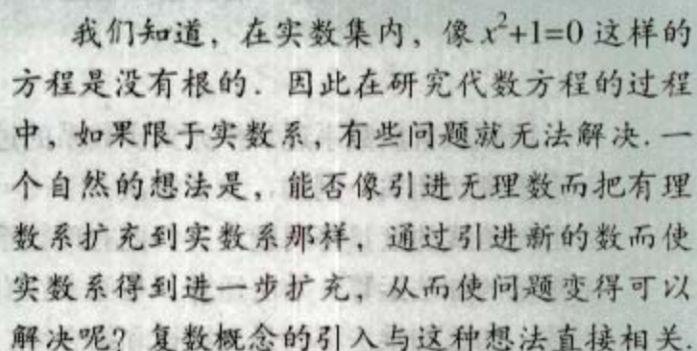 我们知道，在实数集内，像 x²+1=0 这样的
方程是没有根的．因此在研究代数方程的过程
中，如果限于实数系，有些问题就无法解决．一
个自然的想法是，能否像引进无理数而把有理
数系扩充到实数系那样，通过引进新的数而使
实数系得到进一步扩充，从而使问题变得可以
解决呢？复数概念的引入与这种想法直接相关．